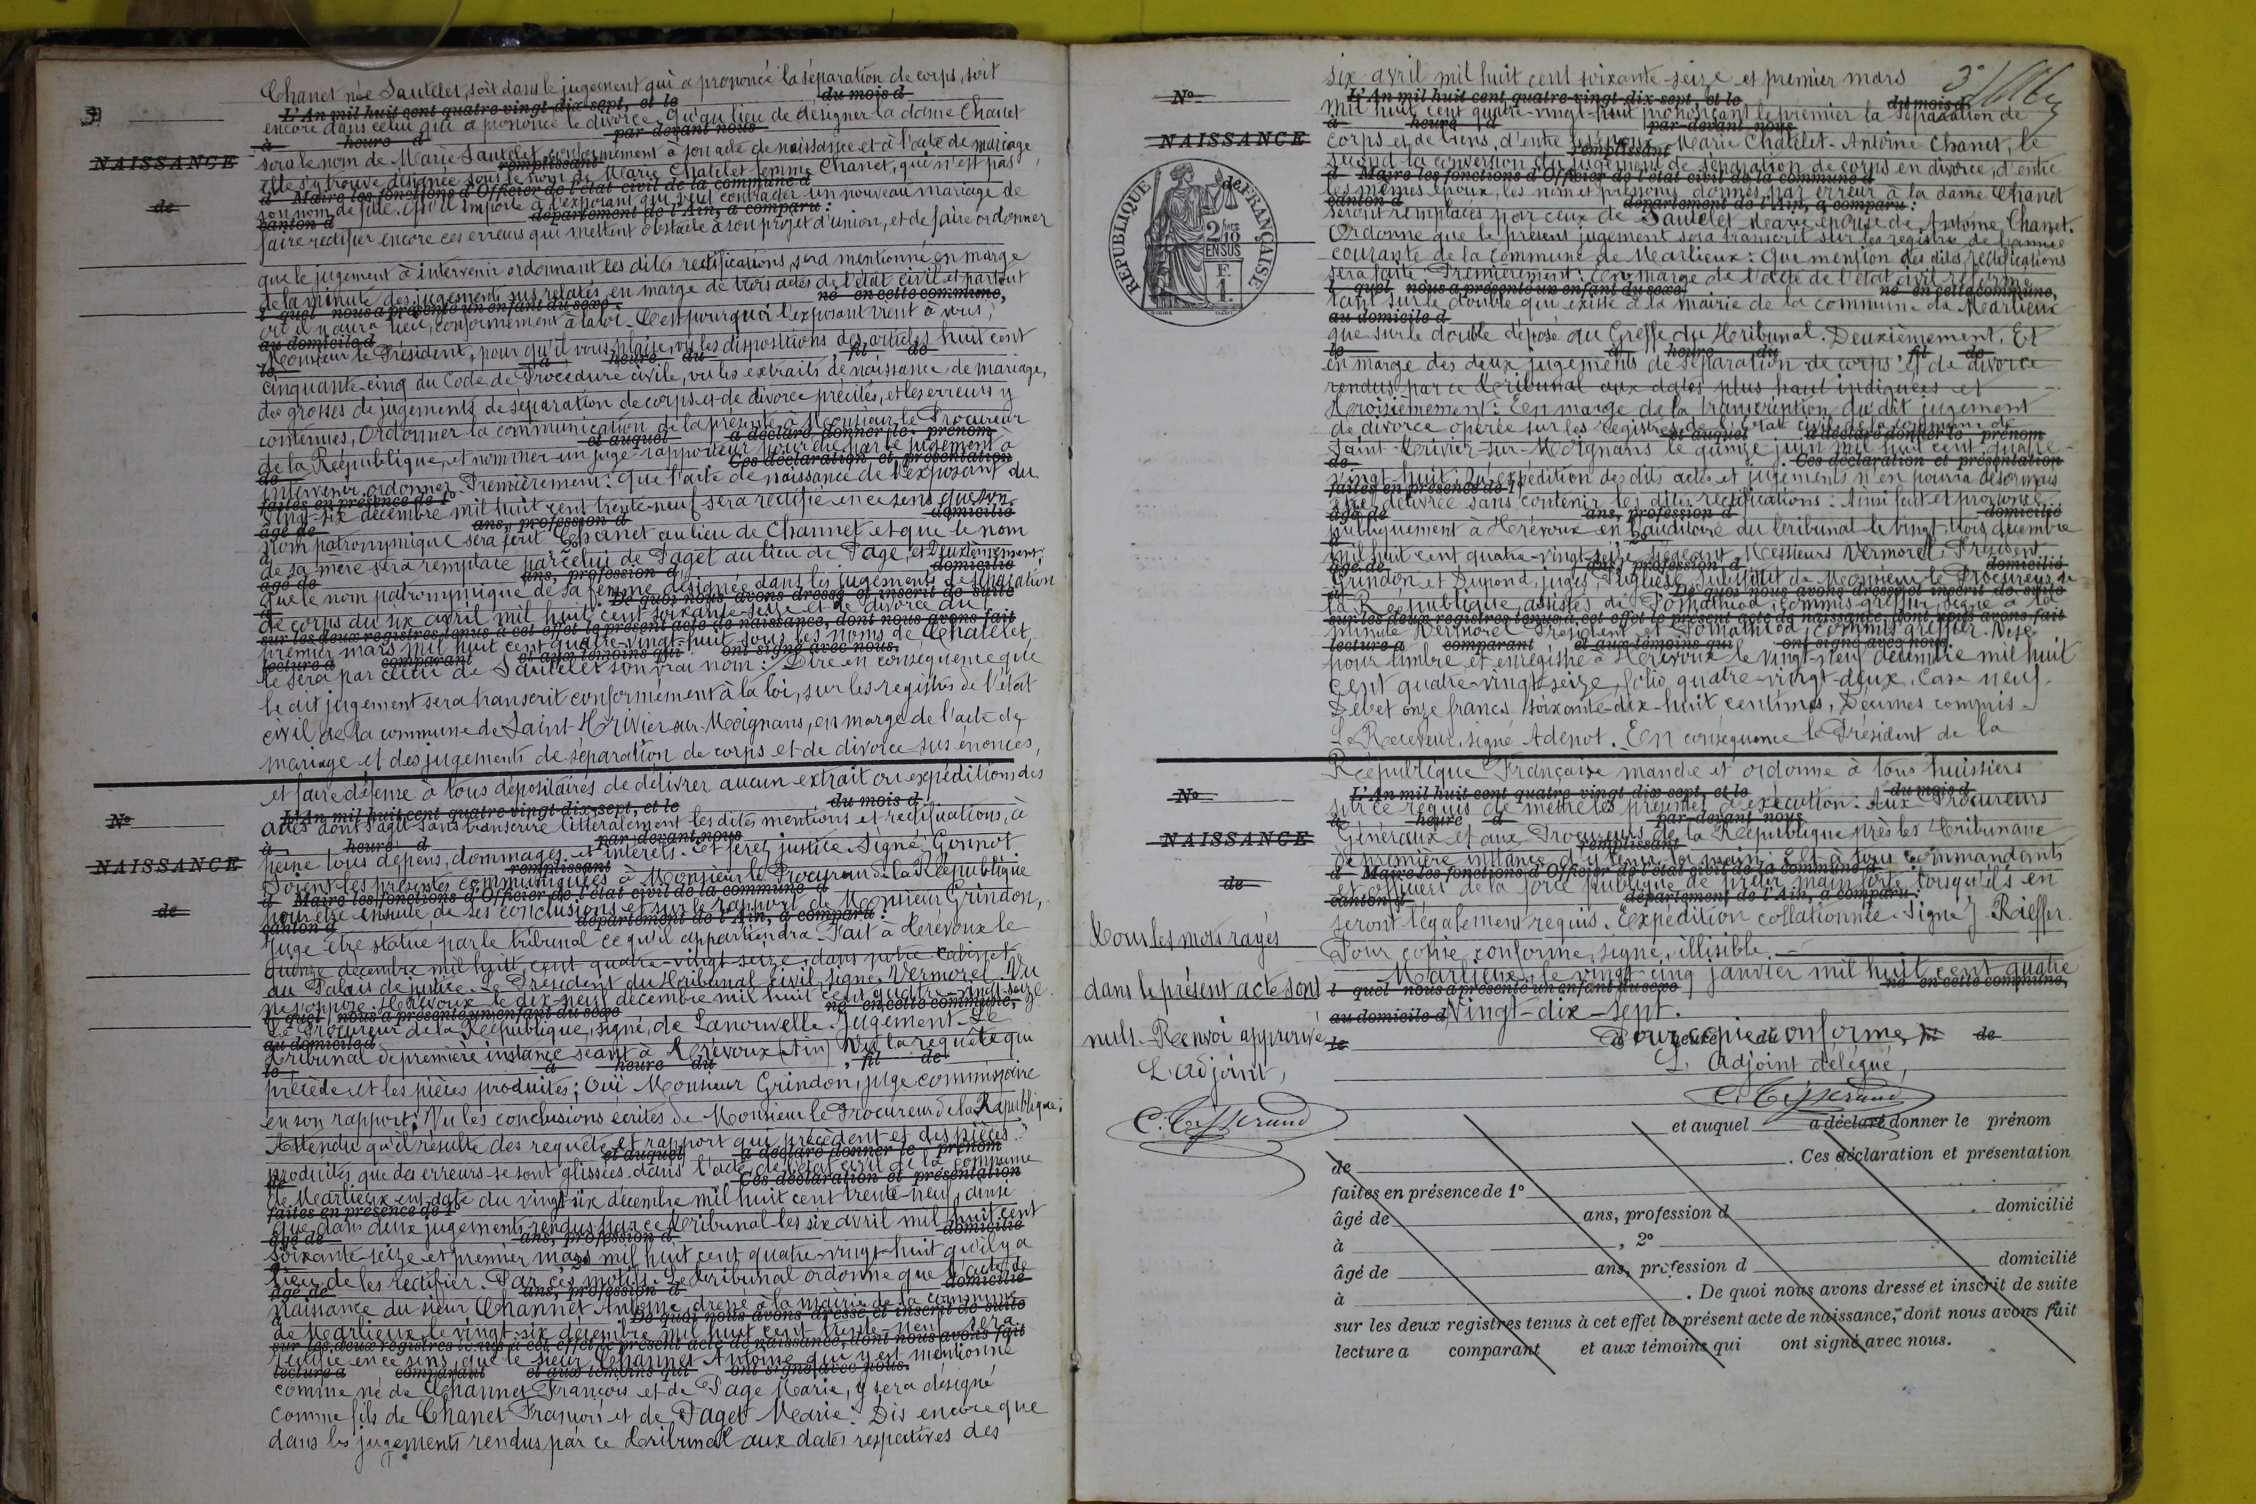 Chanet née Sautelet, soit dans le jugement qui a prononcé la séparation de corps, soit
encore dans celui qui a prononcé le divorce, qu'au lieu de désigner la dame Chanet
sera le nom de Marie Sautelet, conformément à son acte de naissance et à l'acte de mariage
elle s'y trouve désignée sous le nom de Marie Chatelet femme Chanet, qui n'est pas
son nom de fille. Qu'il importe à l'exposant qui veut contracter un nouveau mariage de
faire rectifier encore ces erreurs qui mettent obstacle à son projet d'union, et de faire ordonner
que le jugement à intervenir ordonnant les dites rectifications, sera mentionné en marge
de la minute des jugements sus relatés, en marge de tiers actes de l'état civil et partout
où il y aura lieu, conformément à la loi. C'est pourquoi l'exposant vient à vous,
Monsieur le Président, pour qu'il vous plaise, vu les dispositions des articles huit cent
cinquante-cinq du Code de Procédure civile, vu les extraits de naissance, de mariage,
des grosses de jugements de séparation de corps et de divorce précités, et les erreurs y
contenues, Ordonner la communication de la présente à Monsieur le Procureur
de la République, et nommer un juge-rapporteur pour dire par le jugement à
intervenir ordonner Premièrement: que l'acte de naissance de l'exposant du
vingt-six décembre mil huit cent trente-neuf sera rectifié en ce sens que son
nom patronymique sera écrit Chanet au lieu de Channet et que le nom
de sa mère sera remplacé par celui de Paget au lieu de Page, et Deuxièmement:
que le nom patronymique de sa femme désignée dans les jugements de séparation
de corps du six avril mil huit cent soixante-seize et de divorce du
premier mars mil huit cent quatre-vingt-huit sous les noms de Chatelet
le sera par celui de Sautelet son vrai nom: Dire en conséquence que
le dit jugement sera transcrit conformément à la loi, sur les registres de l'état
civil de la commune de Saint-Trivier-sur-Moignans, en marge de l'acte de
mariage et des jugements de séparation de corps et de divorce sus énoncés,
et faire défense à tous dépositaires de délivrer aucun extrait ou expéditions des
actes dont s'agit sans transcrire littéralement les dites mentions et rectifications, à
peine tous dépens, dommages et intérêts. Et ferez justice. Signé, Gonnot
Soient les présentes communiquées à Monsieur le Procureur de la République
pour être ensuite de ses conclusions et sur le rapport de Monsieur Grindon,
Juge être statué par le tribunal ce qu'il appartiendra. Fait à Trévoux le
quinze décembre mil huit cent quatre-vingt-seize, dans notre cabinet
au Palais de justice. Le Président du Tribunal civil, signé, Vermorel. Vu
ne s'oppose. Trévoux le dix-neuf décembre mil huit cent quatre-vingt-seize.
Le Procureur de la République, signé, de Lanouvelle. Jugement. Le
Tribunal de première instance séant à Trévoux (Ain) Vu la requête qui
précède et les pièces produites; Ouï Monsieur Grindon, juge commissaire
en son rapport; Vu les conclusions écrites de Monsieur le Procureur de la République;
Attendu qu'il résulte des requête et rapport qui précèdent et des pièces
produites que des erreurs se sont glissées dans l'acte de l'état civil de la commune
de Marlieux en date du vingt-six décembre mil huit cent trente-neuf, ainsi
que dans deux jugements rendus par ce Tribunal les six avril mil huit cent
soixante-seize et premier mars mil huit cent quatre-vingt-huit qu'il y a
lieu de les rectifier. Par ces motifs. Le Tribunal ordonne que l'acte de
naissance du sieur Channet Antoine dressé à la mairie de la commune
de Marlieux le vingt-six décembre mil huit cent trente-neuf sera
rectifié en ce sens que le sieur Channet Antoine qui y est mentionné
comme né de Channet François et de Page Marie, y sera désigné
comme fils de Chanet François et de Paget Marie. Dis encore que
dans les jugements rendus par ce Tribunal aux dates respectives des
NAISSANCE
de
No
NAISSANCE
de
six avril mil huit cent soixante-seize et premier mars
mil huit cent quatre-vingt-huit prononçant le premier la séparation de
corps et de biens, d'entre les époux Marie Chatelet-Antoine Chanet, le
second la conversion du jugement de séparation de corps en divorce, d'entre
les mêmes époux, les nom et prénoms donnés par erreur à la dame Chanet
seront remplacés par ceux de Sautelet Marie épouse de Antoine Chanet.
Ordonne que le présent jugement sera transcrit sur les registres de l'année
courante de la commune de Marlieux: Que mention des dites rectifications
sera faite: Premièrement: en marge de l'acte de l'état civil réformé
tant sur le double qui existe à la mairie de la commune de Marlieux
que sur le double déposé au Greffe du Tribunal. Deuxièmement. Et
en marge des deux jugements de séparation de corps et de divorce
rendus par ce Tribunal aux dates plus haut indiquées et
Troisièmement: En marge de la transcription du dit jugement
de divorce opérée sur les registres de l'état civil de la commune de
Saint-Trivier-sur-Moignans le quinze juin mil huit cent quatre-
vingt-huit. Qu'expédition des dits actes et jugements n'en pourra désormais
être délivrée sans contenir les dites rectifications: Ainsi fait et prononcé
publiquement à Trévoux en l'auditoire du Tribunal le vingt-trois décembre
mil huit cent quatre-vingt-seize. Siégeant: Messieurs Vermorel, Président
Grindon et Dupond, juges, Pugliesi, Substitut de Monsieur le Procureur de
la République, assistés de Pomathiod, commis greffier, signé à la
minute Vermorel Président et Pomathiod, commis greffier. Visé
pour timbre et enregistré à Trévoux le vingt-neuf décembre mil huit
cent quatre-vingt-seize, folio quatre-vingt-deux, case neuf.
Débet onze francs soixante-dix-huit centimes, Décimes compris.
Le Receveur, signé Adenot. En conséquence le Président de la
République Française mande et ordonne à tous huissiers
sur ce requis de mettre les présentes à exécution: Aux Procureurs
Généraux et aux Procureurs de la République près les Tribunaux
de première instance d'y tenir la main: Et à tous commandants
et officiers de la force publique de prêter main forte lorsqu'ils en
seront légalement requis. Expédition collationnée. Signé J. Rieffer.
Pour copie conforme, signé, illisible.
Marlieux, le vingt-cinq janvier mil huit cent quatre
Vingt-dix-sept.
Pour copie conforme,
L'adjoint délégué,
C. Tisserand
No
NAISSANCE
RÉPUBLIQUE FRANÇAISE
2 fcs
2/10
EN SUS
F.
1.
No
NAISSANCE
de
Tous les mots rayés
dans le présent acte sont
nuls. Renvoi approuvé
L'adjoint,
C. Tisserand
et auquel a déclaré donner le prénom
de . Ces déclaration et présentation
faites en présence de 1°
âgé de ans, profession d domicilié
à , 2°
âgé de ans, profession d domicilié
à . De quoi nous avons dressé et inscrit de suite
sur les deux registres tenus à cet effet le présent acte de naissance, dont nous avons fait
lecture a comparant et aux témoins qui ont signé avec nous.